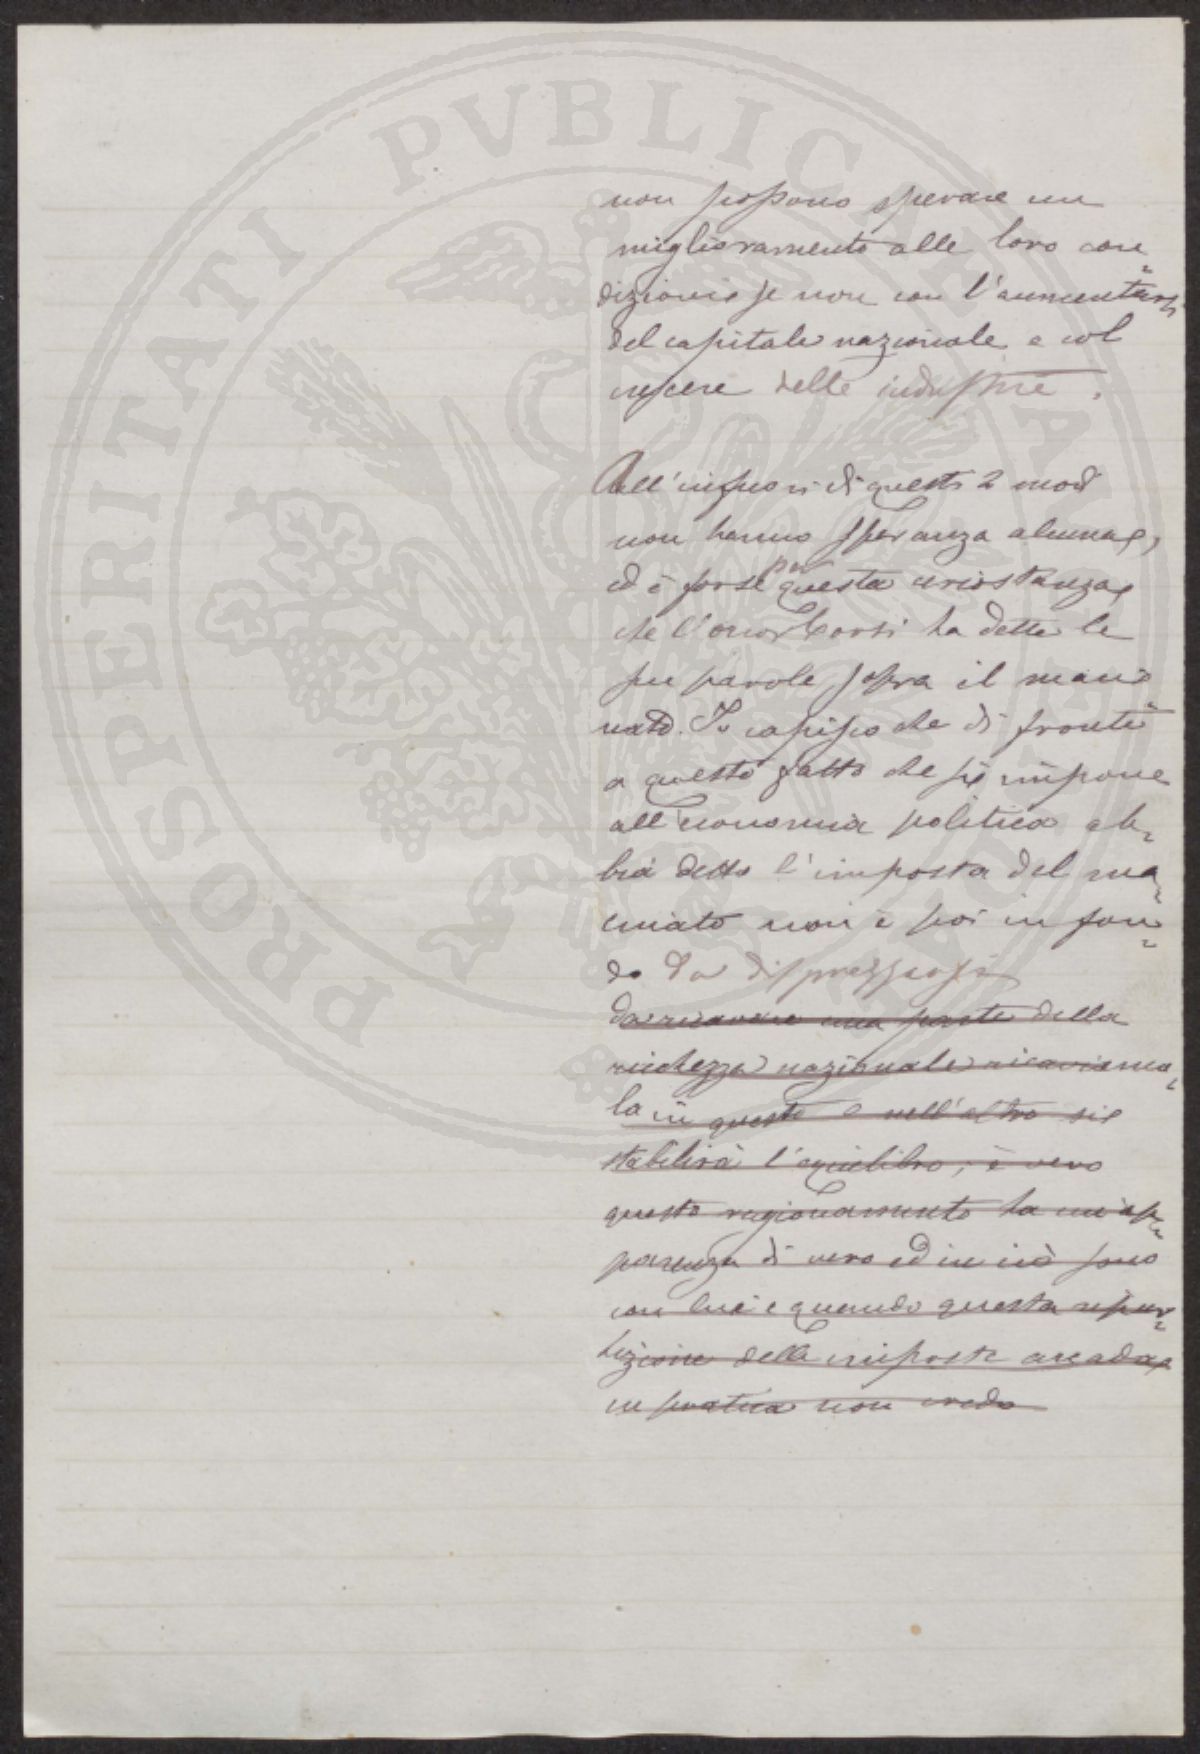 non possono sperare un
miglioramento alle loro con=
dizioni se non con l'aumentarsi
del capitale nazionale e col
crescere delle industrie.
All'infuori di questi 2 modi
non hanno speranza alcuna,
ed è forse per questa circostanza
che l'onor Corsi ha dette le
sue parole sopra il maci=
nato. Io capisco che di fronte
a questo fatto che si impone
all'economia politica ab=
bia detto l'imposta del ma=
cinato non è poi in fon=
do da disprezzarsi
ricavare una parte della
ricchezza nazionale ricaviamo=
la in questo e nell'altro si
stabilirà l'equilibro; è vero
questo ragionamento ha un'ap=
parenza di vero ed in ciò sono
con lui e quando questa ripar=
tizione delle imposte accada
in pratica non credo
PROSPERITATI PVBLICAE